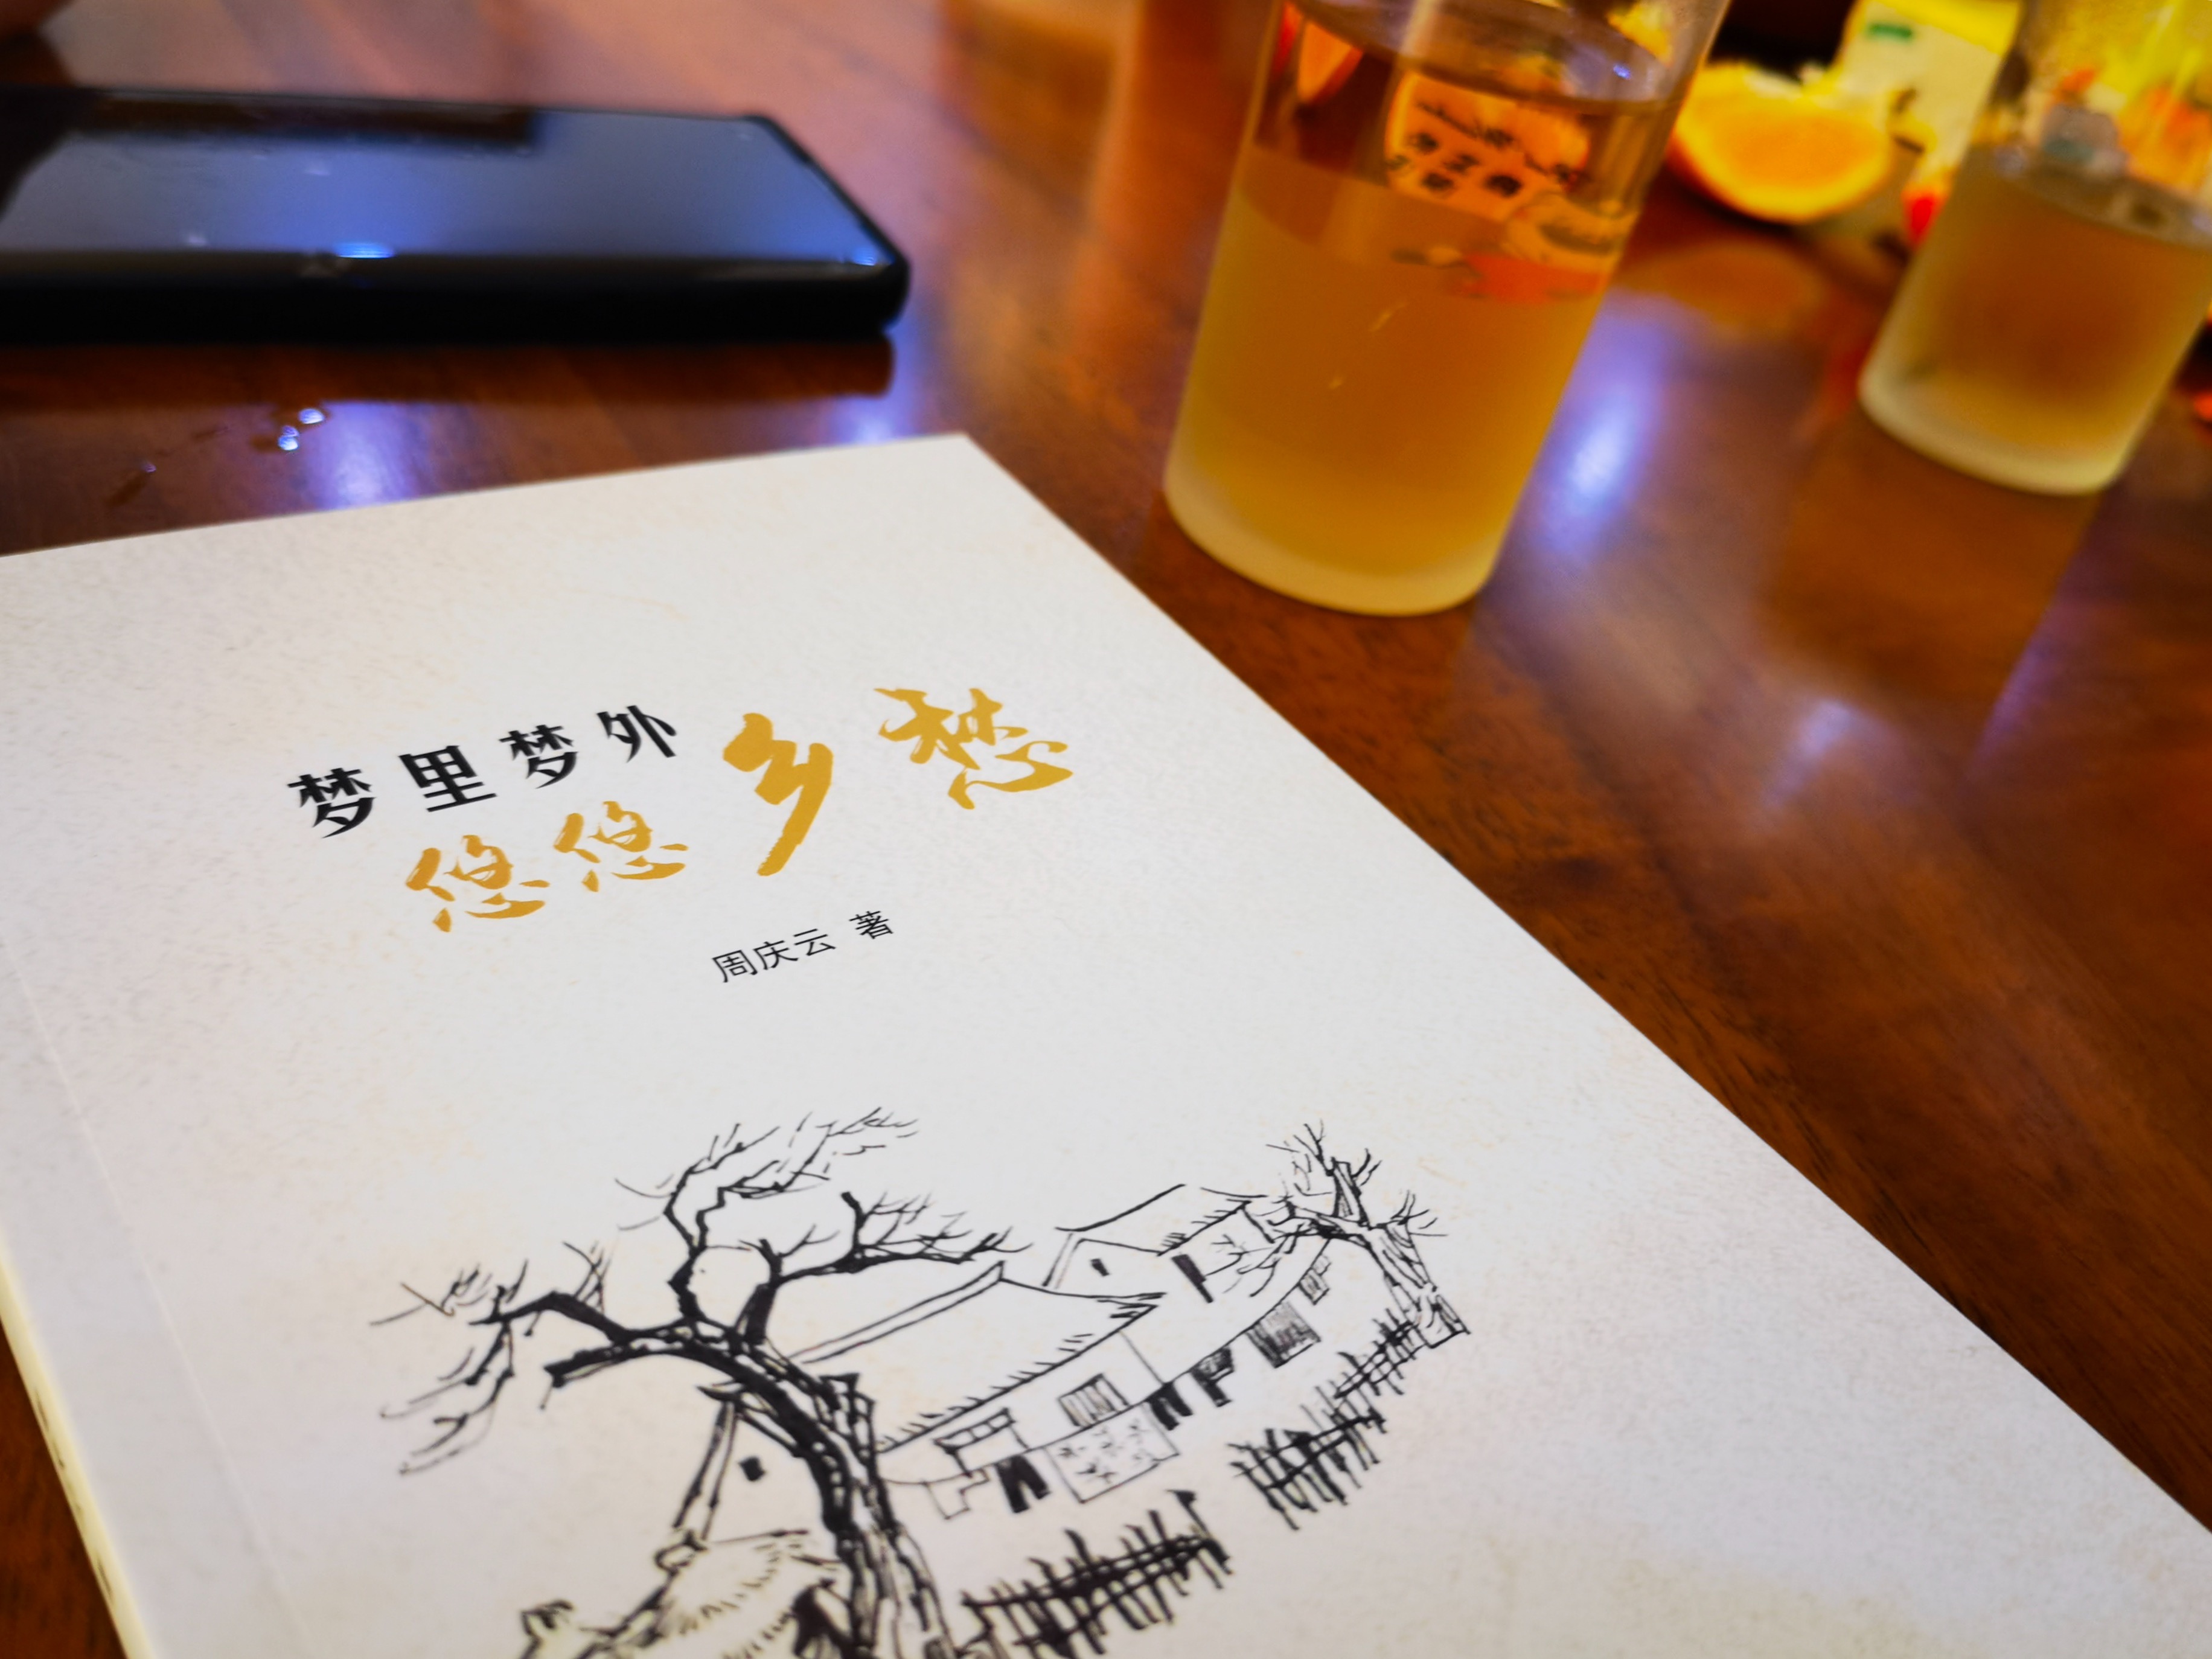 梦里梦外
悠悠乡愁
周庆云 著